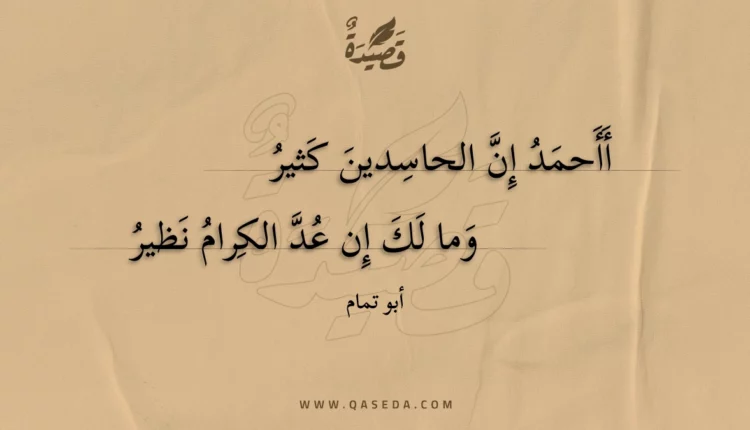 قَصِيدَةٌ
أَأَحمَدُ إِنَّ الحاسِدينَ كَثيرُ
وَما لَكَ إِن عُدَّ الكِرامُ نَظيرُ
أبو تمام
WWW.QASEDA.COM